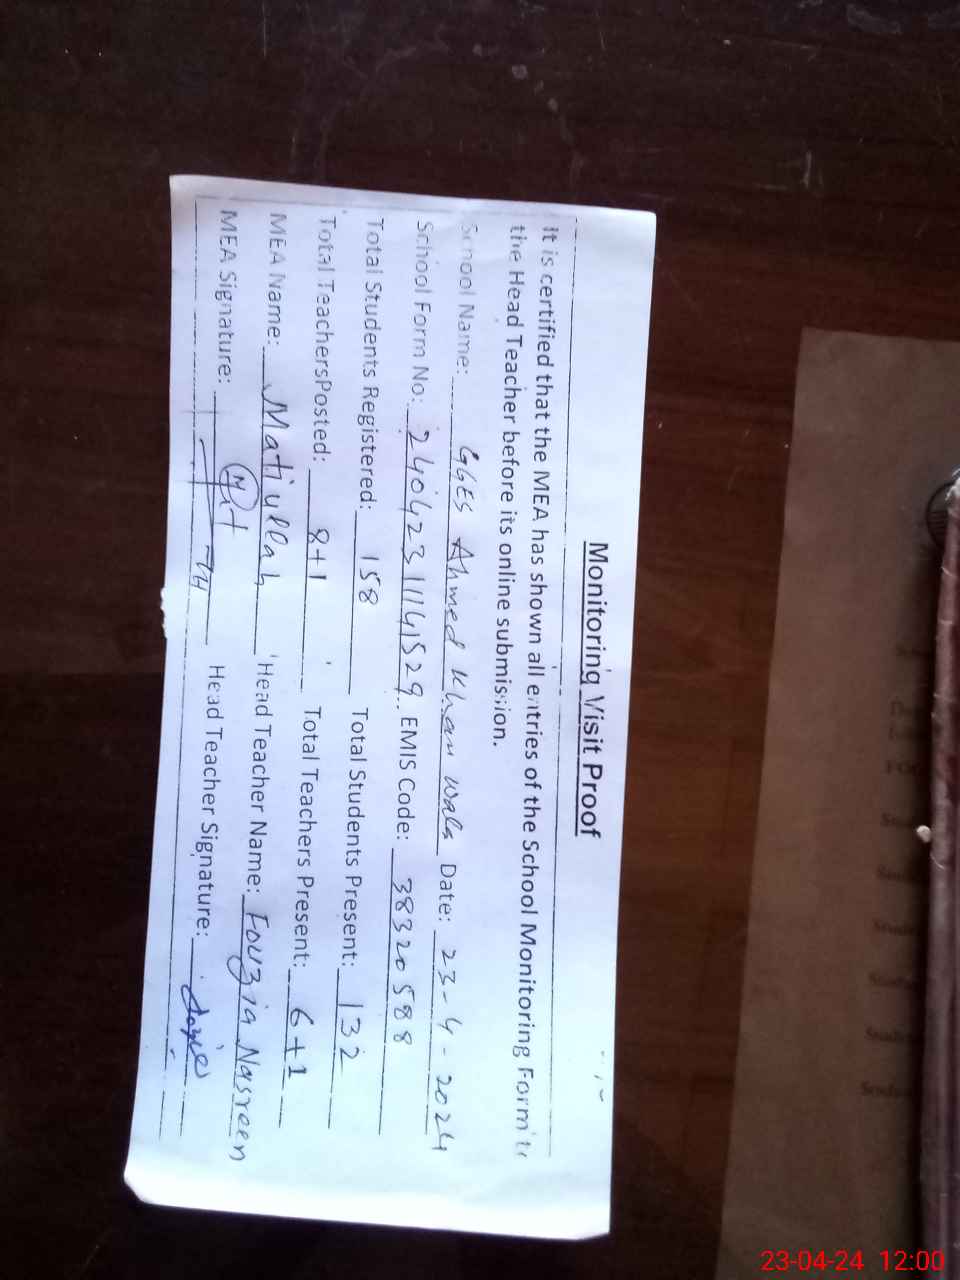 Monitoring Visit Proof
It is certified that the MEA has shown all entries of the School Monitoring Form to
the Head Teacher before its online submission.
School Name: GGES Ahmed Khan wala Date: 23-4-2024
School Form No: 2404231141529. EMIS Code: 38320588
Total Students Registered: 158 Total Students Present: 132
Total TeachersPosted: 8+1 Total Teachers Present: 6+1
MEA Name: Matiullah Head Teacher Name: Fouzia Nasreen
MEA Signature: Head Teacher Signature:
23-04-24 12:00